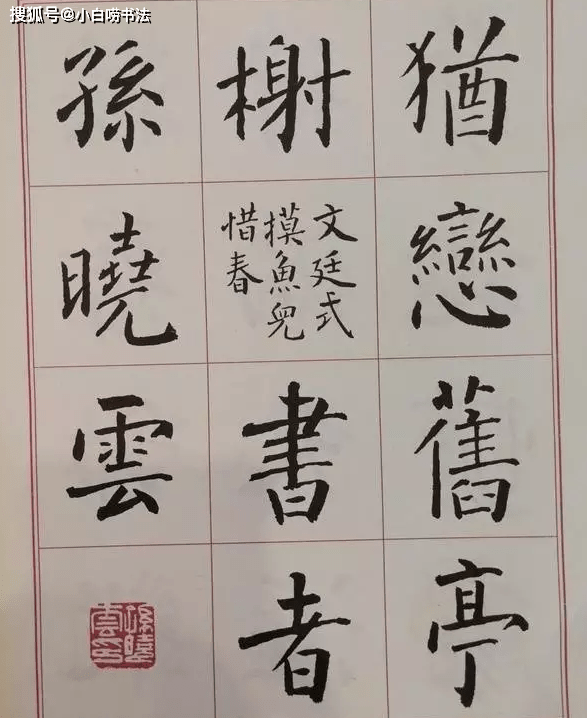 搜狐号@小白唠书法
猶戀舊亭
榭
文廷式
摸魚兒
惜春
書者
孫曉雲
孫曉雲印